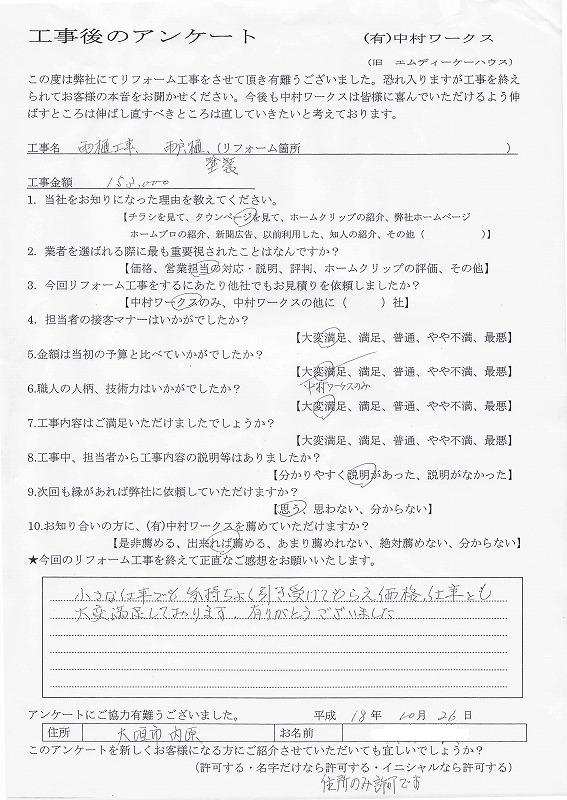 工事後のアンケート
(有)中村ワークス
(旧 エムディーケーハウス)
この度は弊社にてリフォーム工事をさせて頂き有難うございました。恐れ入りますが工事を終え
られてお客様の本音をお聞かせください。今後も中村ワークスは皆様に喜んでいただけるよう伸
ばすところは伸ばし直すべきところは直していきたいと考えております。
工事名 雨樋工事、 雨戸樋、(リフォーム箇所 )
塗装
工事金額 158,000
1. 当社をお知りになった理由を教えてください。
【チラシを見て、タウンページを見て、ホームクリップの紹介、弊社ホームページ
ホームプロの紹介、新聞広告、以前利用した、知人の紹介、その他( )】
2. 業者を選ばれる際に最も重要視されたことはなんですか?
【価格、営業担当の対応・説明、評判、ホームクリップの評価、その他】
3. 今回リフォーム工事をするにあたり他社でもお見積りを依頼しましたか?
【中村ワークスのみ、中村ワークスの他に( )社】
4. 担当者の接客マナーはいかがでしたか?
【大変満足、満足、普通、やや不満、最悪】
5.金額は当初の予算と比べていかがでしたか?
【大変満足、満足、普通、やや不満、最悪】
6.職人の人柄、技術力はいかがでしたか?
中村ワークスのみ
【大変満足、満足、普通、やや不満、最悪】
7.工事内容はご満足いただけましたでしょうか?
【大変満足、満足、普通、やや不満、最悪】
8.工事中、担当者から工事内容の説明等はありましたか?
【分かりやすく説明があった、説明がなかった】
9.次回も縁があれば弊社に依頼していただけますか?
【思う、思わない、分からない】
10.お知り合いの方に、(有)中村ワークスを薦めていただけますか?
【是非薦める、出来れば薦める、あまり薦めれない、絶対薦めない、分からない】
★今回のリフォーム工事を終えて正直なご感想をお願いいたします。
小さな仕事でも 気持ちよく引き受けてもらえ価格、仕事とも
大変満足しております。有りがとうございました
アンケートにご協力有難うございました。 平成 18年 10月 26日
住所 大垣市内原 お名前
このアンケートを新しくお客様になる方にご紹介させていただいても宜しいでしょうか?
(許可する・名字だけなら許可する・イニシャルなら許可する)
住所のみ許可です